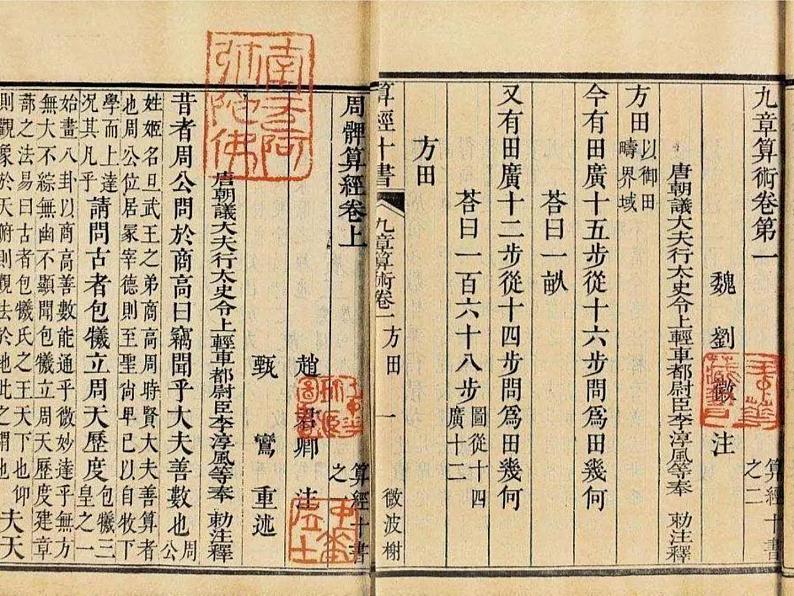 九章算術卷第一
算經十書之二
魏 劉徽 注
唐朝議大夫行太史令上輕車都尉臣李淳風等奉 勑注釋
方田以御田疇界域
今有田廣十五步從十六步問爲田幾何
荅曰一畝
又有田廣十二步從十四步問爲田幾何
荅曰一百六十八步圖從十四廣十二
方田
算經十書 九章算術卷一方田 一 微波榭
周髀算經卷上
算經十書之一
趙君卿 注
甄鸞 重述
唐朝議大夫行太史令上輕車都尉臣李淳風等奉 勑注釋
昔者周公問於商高曰竊聞乎大夫善數也周公
姓姬名旦武王之弟商高周時賢大夫善算者
也周公位居冢宰德則至聖尙卑己以自牧下
學而上達況其凡乎請問古者包犧立周天歷度包犧三皇之一
始畫八卦以商高善數能通乎微妙達乎無方
無大不綜無幽不顯聞包犧立周天歷度建章
蔀之法易曰古者包犧氏之王天下也仰
則觀象於天俯則觀法於地此之謂也夫天
南无阿弥陀佛